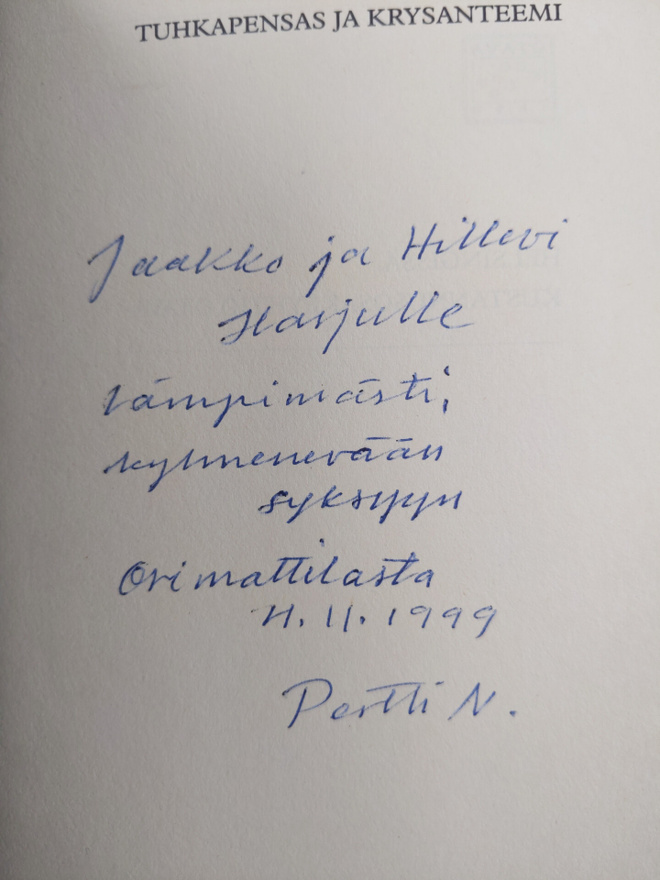 TUHKAPENSAS JA KRYSANTEEMI
Jaakko ja Hillevi
Harjulle
lämpimästi,
kylmenevään
syksyyn
Orimattilasta
4.11.1999
Pertti N.